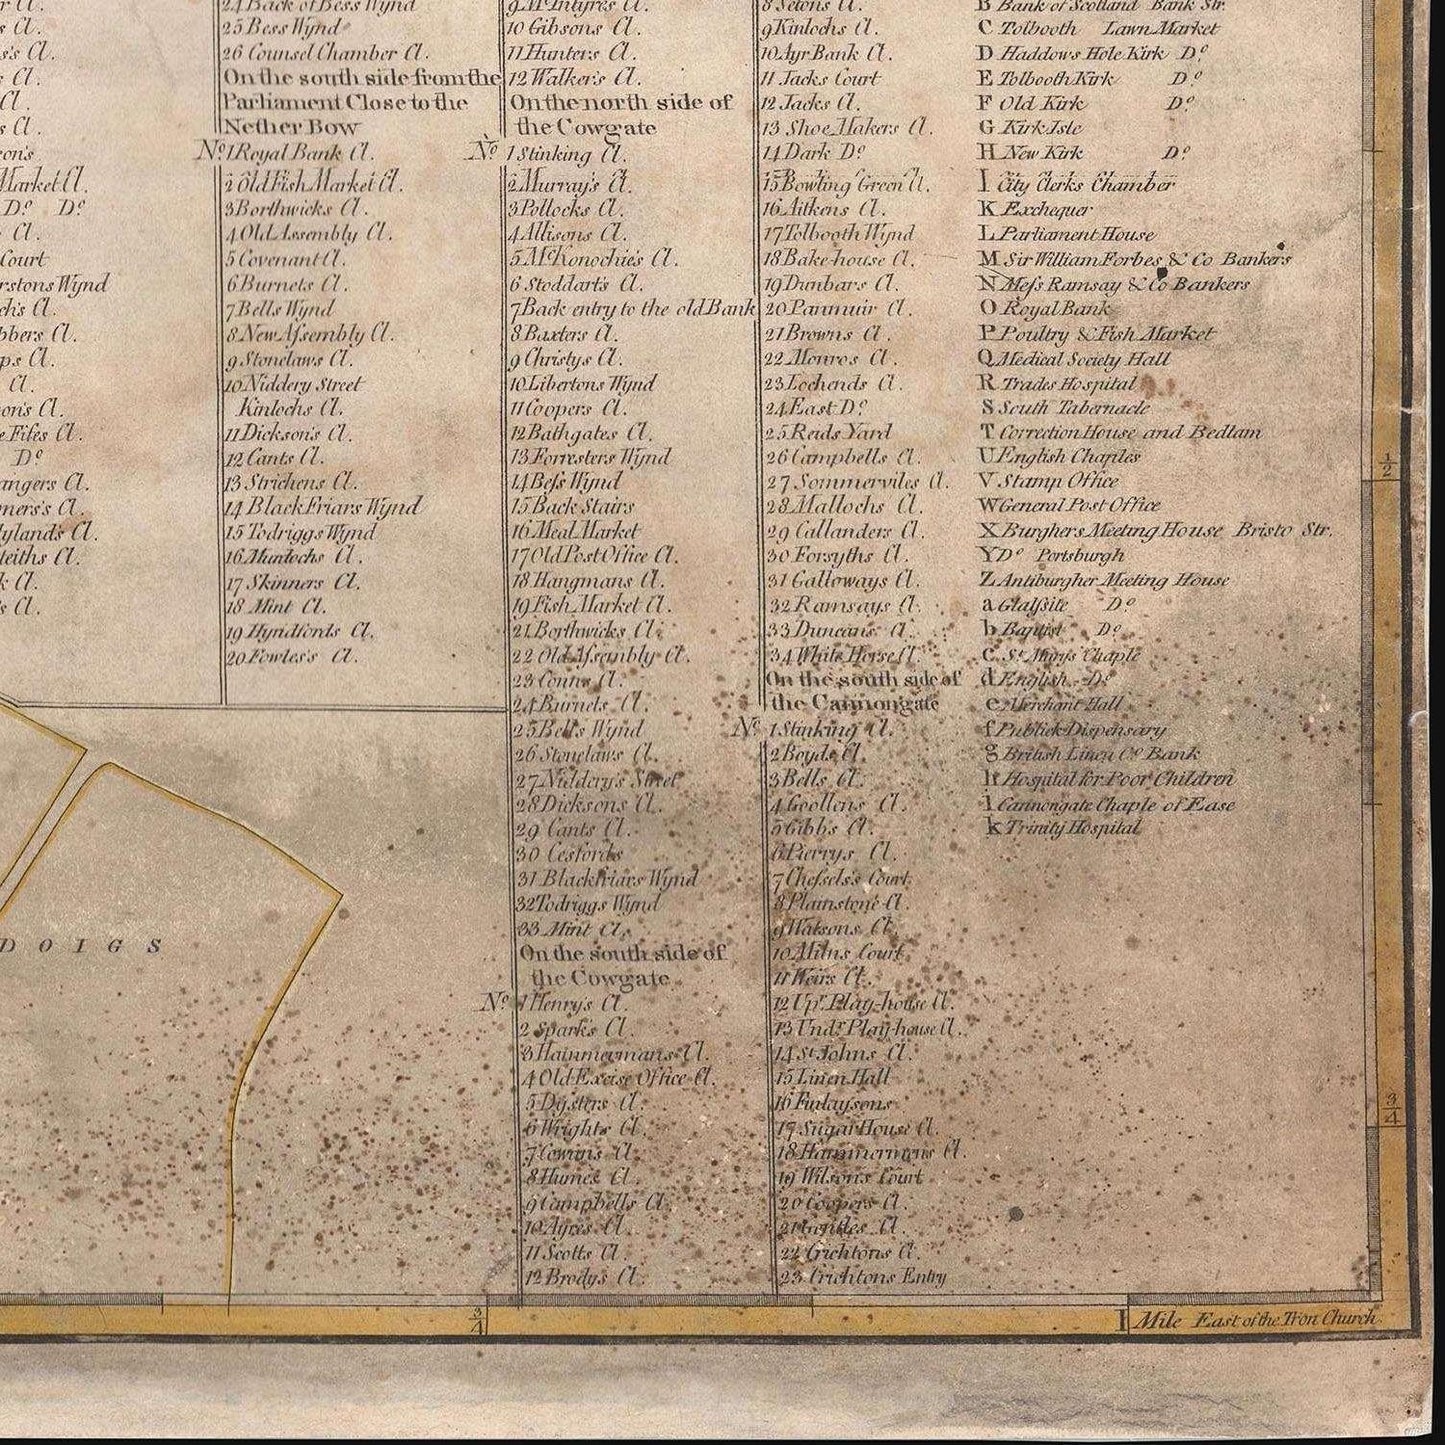 r Cl.
s Cl.
s's Cl.
s Cl.
Cl.
s Cl.
on's
Market Cl.
Dº Dº
Cl.
Court
rstons Wynd
ch's Cl.
bbers Cl.
ps Cl.
Cl.
on's Cl.
e Fifes Cl.
Dº
angers Cl.
mers's Cl.
ylands Cl.
teiths Cl.
k Cl.
s Cl.
24 Back of Bess Wynd
25 Bess Wynd
26 Counsel Chamber Cl.
On the south side from the
Parliament Close to the
Nether Bow
Nº 1 Royal Bank Cl.
2 Old Fish Market Cl.
3 Borthwicks Cl.
4 Old Assembly Cl.
5 Covenant Cl.
6 Burnets Cl.
7 Bells Wynd
8 New Assembly Cl.
9 Stonelaws Cl.
10 Niddery Street
Kinlochs Cl.
11 Dickson's Cl.
12 Cants Cl.
13 Strichens Cl.
14 Black Friars Wynd
15 Todriggs Wynd
16 Murdochs Cl.
17 Skinners Cl.
18 Mint Cl.
19 Hyndfords Cl.
20 Fowles's Cl.
DOIGS
9 McIntyres Cl.
10 Gibsons Cl.
11 Hunters Cl.
12 Walker's Cl.
On the north side of
the Cowgate
Nº 1 Stinking Cl.
2 Murray's Cl.
3 Pollocks Cl.
4 Allisons Cl.
5 McKonochie's Cl.
6 Stoddart's Cl.
7 Back entry to the old Bank
8 Baxters Cl.
9 Christys Cl.
10 Libertons Wynd
11 Coopers Cl.
12 Bathgates Cl.
13 Forresters Wynd
14 Bess Wynd
15 Back Stairs
16 Meal Market
17 Old Post Office Cl.
18 Hangmans Cl.
19 Fish Market Cl.
21 Borthwicks Cl.
22 Old Assembly Cl.
23 Conns Cl.
24 Burnets Cl.
25 Bells Wynd
26 Stonelaws Cl.
27 Niddery's Street
28 Dicksons Cl.
29 Cants Cl.
30 Cesfords
31 Blackfriars Wynd
32 Todriggs Wynd
33 Mint Cl.
On the south side of
the Cowgate
Nº 1 Henry's Cl.
2 Spark's Cl.
3 Hammermans Cl.
4 Old Excise Office Cl.
5 Dysters Cl.
6 Wrights Cl.
7 Cowans Cl.
8 Humes Cl.
9 Campbells Cl.
10 Ayres Cl.
11 Scotts Cl.
12 Brodys Cl.
8 Setons Cl.
9 Kinlochs Cl.
10 Ayr Bank Cl.
11 Jacks Court
12 Jacks Cl.
13 Shoe Makers Cl.
14 Dark Dº
15 Bowling Green Cl.
16 Aitkens Cl.
17 Tolbooth Wynd
18 Bake-house Cl.
19 Dunbars Cl.
20 Panmuir Cl.
21 Browns Cl.
22 Monros Cl.
23 Lochends Cl.
24 East Dº
25 Reids Yard
26 Campbells Cl.
27 Sommerviles Cl.
28 Mallochs Cl.
29 Callanders Cl.
30 Forsyths Cl.
31 Galloways Cl.
32 Ramsays Cl.
33 Duncans Cl.
34 White Horse Cl.
On the south side of
the Cannongate
Nº 1 Stinking Cl.
2 Boyds Cl.
3 Bells Cl.
4 Goollens Cl.
5 Gibbs Cl.
6 Pierrys Cl.
7 Chessels's Court
8 Plainstone Cl.
9 Watsons Cl.
10 Milns Court
11 Weirs Cl.
12 Upr. Play-house Cl.
13 Undr. Play-house Cl.
14 St Johns Cl.
15 Linen Hall
16 Finlaysons
17 Sugar House Cl.
18 Hammermens Cl.
19 Wilsons Court
20 Coopers Cl.
21 Gentles Cl.
22 Crichtons Cl.
23 Crichtons Entry
B Bank of Scotland Bank Str.
C Tolbooth Lawn Market
D Haddow's Hole Kirk Dº
E Tolbooth Kirk Dº
F Old Kirk Dº
G Kirk Isle
H New Kirk Dº
I City Clerks Chamber
K Exchequer
L Parliament House
M Sir William Forbes & Co Bankers
N Mess Ramsay & Co Bankers
O Royal Bank
P Poultry & Fish Market
Q Medical Society Hall
R Trades Hospital
S South Tabernacle
T Correction House and Bedlam
U English Chaples
V Stamp Office
W General Post Office
X Burghers Meeting House Bristo Str.
Y Dº Portsburgh
Z Antiburgher Meeting House
a Glassite Dº
b Baptist Dº
c St. Marys Chaple
d English Dº
e Merchant Hall
f Publick Dispensary
g British Linen Cº Bank
h Hospital for Poor Children
i Cannongate Chaple of Ease
k Trinity Hospital
1/2
3/4
3/4
1 Mile East of the Tron Church